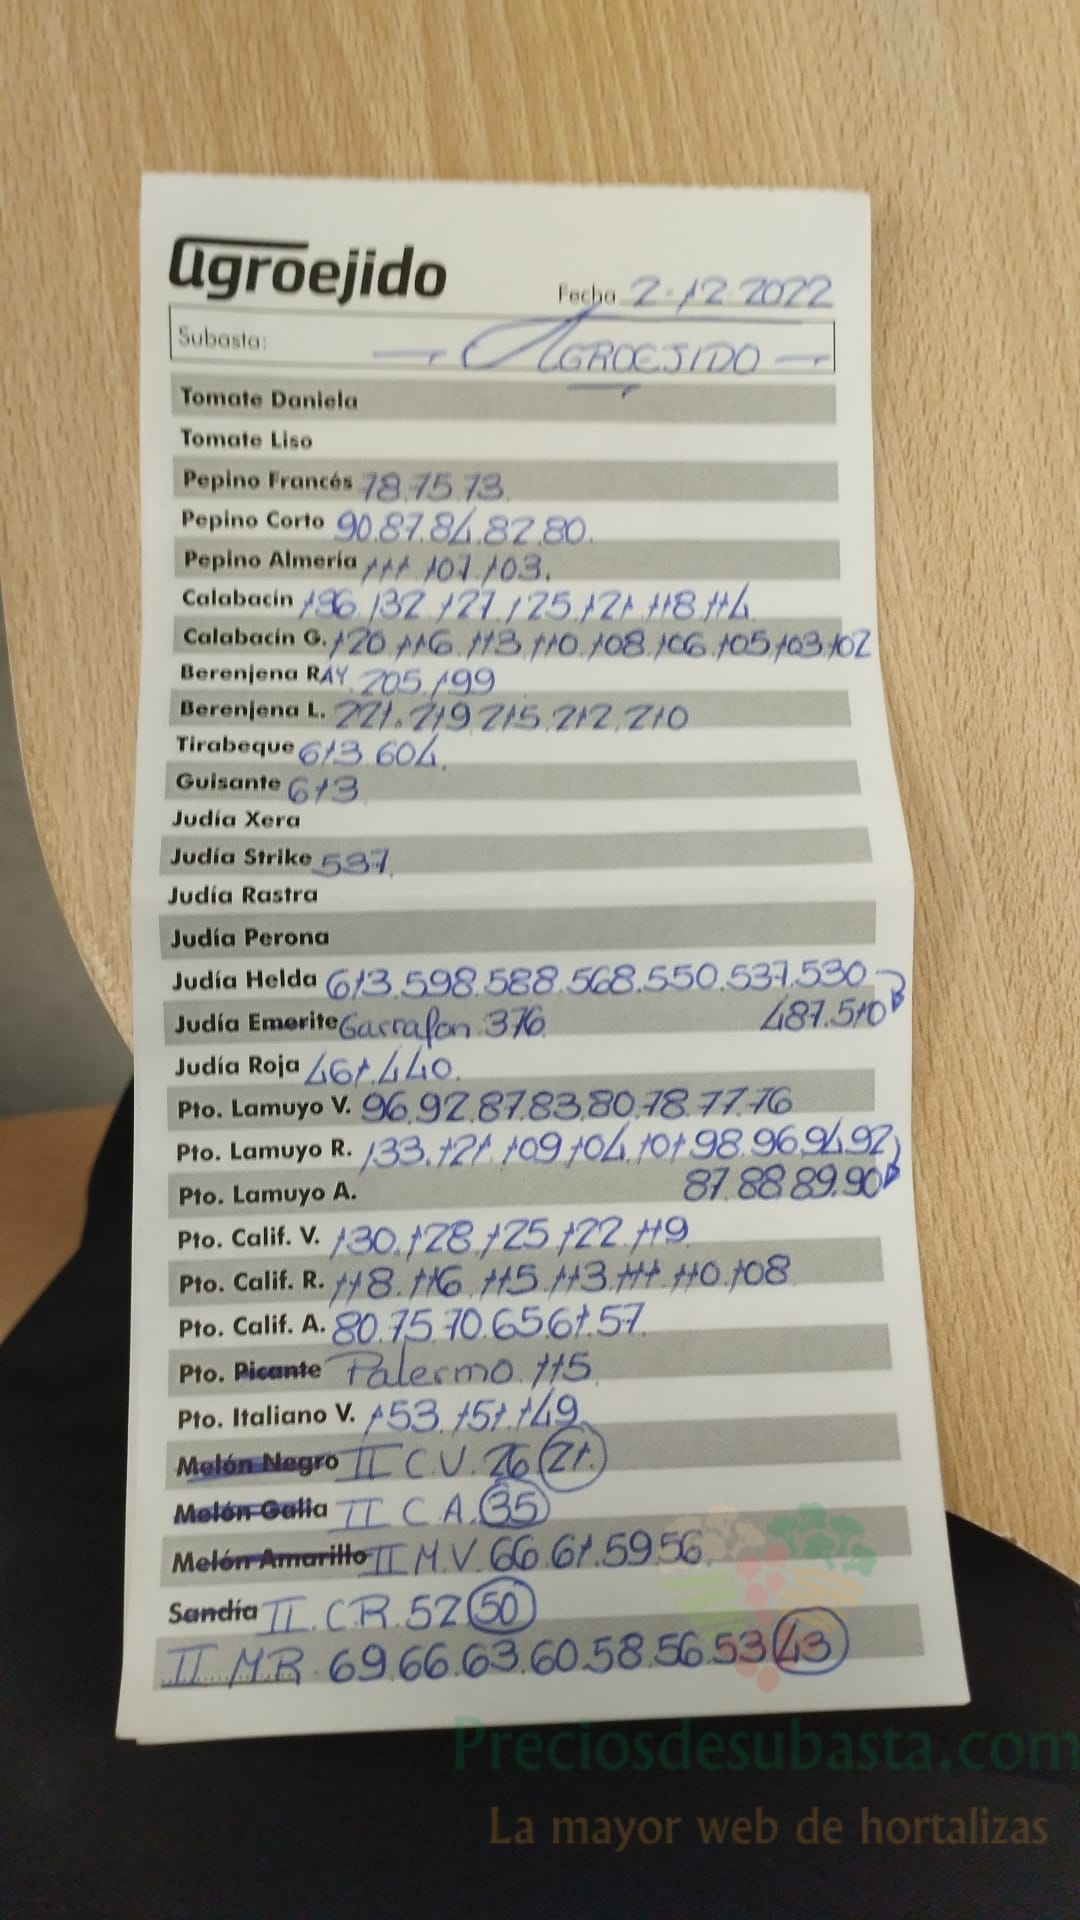 agroejido
Fecha 2-12-2022
Subasta: AGROEJIDO
Tomate Daniela
Tomate Liso
Pepino Francés 78.75.73
Pepino Corto 90.87.84.82.80.
Pepino Almería 111.107.103.
Calabacín 136.132.127.125.121.118.114
Calabacín G. 120.116.113.110.108.106.105.103.102
Berenjena RAY. 205.199
Berenjena L. 221.219.215.212.210
Tirabeque 613.604.
Guisante 613
Judía Xera
Judía Strike 537.
Judía Rastra
Judía Perona
Judía Helda 613.598.588.568.550.537.530
Judía Emerite Garrafon.376 487.510
Judía Roja 461.440.
Pto. Lamuyo V. 96.92.87.83.80.78.77.76
Pto. Lamuyo R. 133.121.109.104.101.98.96.94.92
Pto. Lamuyo A. 87.88.89.90
Pto. Calif. V. 130.128.125.122.119
Pto. Calif. R. 118.116.115.113.111.110.108
Pto. Calif. A. 80.75.70.65.61.57.
Pto. Picante Palermo.115.
Pto. Italiano V. 153.151.149
Melón Negro II C.V. 26 21.
Melón Galia II C.A. 35
Melón Amarillo II M.V. 66.61.59.56
Sandía II.C.R.52 50
II MR 69.66.63.60.58.56.53 43
Preciosdesubasta.com
La mayor web de hortalizas